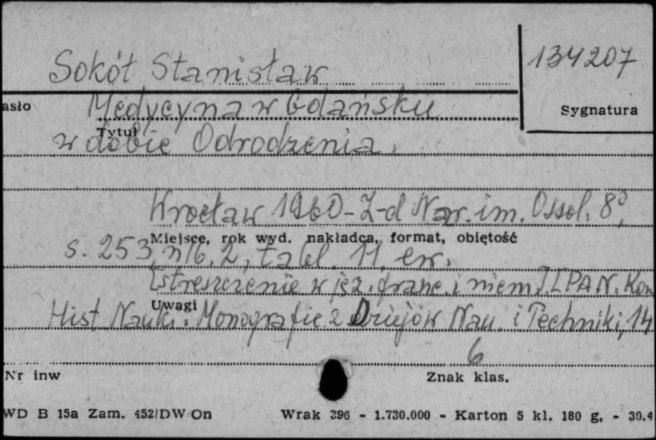 Sokół Stanisław
134207
asło
Medycyna w Gdańsku
Sygnatura
Tytuł
w dobie Odrodzenia.
Wrocław 1960 - Z-d Nar. im. Ossol. 8°,
Miejsce, rok wyd. nakładca, format, objętość
s. 253, nlb. 2, tabl. 11, err.
[streszczenie w jęz. franc. i niem.] [PAN. Kom
Uwagi
Hist Nauki. Monografie z Dziejów Nau. i Techniki, 14
6
Nr inw
Znak klas.
WD B 15a Zam. 452/DW On
Wrak 396 - 1.730.000 - Karton 5 kl. 180 g. - 30.4